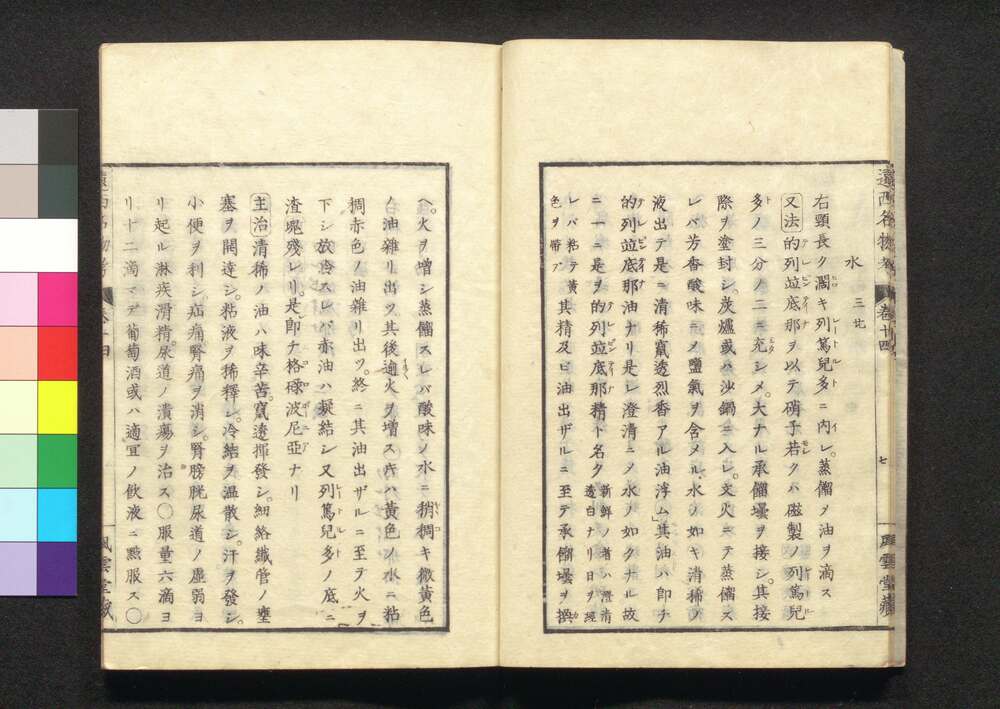 遠西名物考 卷十四 七 風雲堂藏
水 三廿
右頸長ク濶キ列篤兒多ニ内レ。蒸餾ノ油ヲ滴ス
又法 的列並底那ヲ以テ硝子若クハ磁製ノ列篤兒
多ノ三分ノ二ニ充シメ。大ナル承餾壜ヲ接シ。其接
際ヲ塗封シ。炭爐或ハ沙鍋ニ入レ。文火ニテ蒸餾ス
レバ芳香酸味ニノ鹽氣ヲ含メル。水ノ如キ清稀ノ
液出テ是ニ清稀竄透烈香アル油浮ム」其油ハ即チ
的列並底那油ナリ是レ澄清ニタ水ノ如クナル故
ニ一ニ是ヲ的列並底那精ト名ク 新鮮ノ者ハ澄清透白ナリ日ヲ經
レバ粘テ黄色ヲ帶ブ 其精及ビ油出ザルニ至テ承餾壜ヲ換
ヘ。火ヲ増シ蒸餾スレバ酸味ノ水ニ稍稠キ微黄色
ノ油雜リ出ヅ其後逾火ヲ増ス片ハ黄色ノ水ニ粘
稠赤色ノ油雜リ出ツ。終ニ其油出ザルニ至テ火ヲ
下シ放冷スレバ亦油ハ凝結シ又列篤兒多ノ底ニ
渣塊殘レリ。是即チ格碌波尼亞ナリ
主治 清稀ノ油ハ味辛苦。竄透揮發シ。細絡纖管ノ壅
塞ヲ開達シ。粘液ヲ稀釋シ。冷結ヲ温散シ。汗ヲ發シ。
小便ヲ利シ。疝痛腎痛ヲ消シ。腎膀胱尿道ノ虚弱ヨ
リ起ル淋疾滑精。尿道ノ潰瘍ヲ治ス〇服量六滴ヨ
リ十二滴マデ葡萄酒或ハ適宜ノ飲液ニ點服ス〇